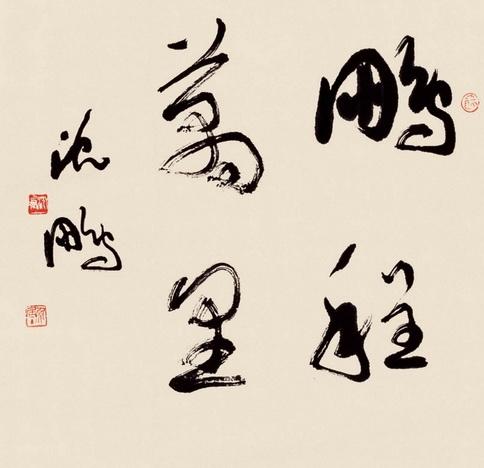 鹏程
萬里
沈鹏